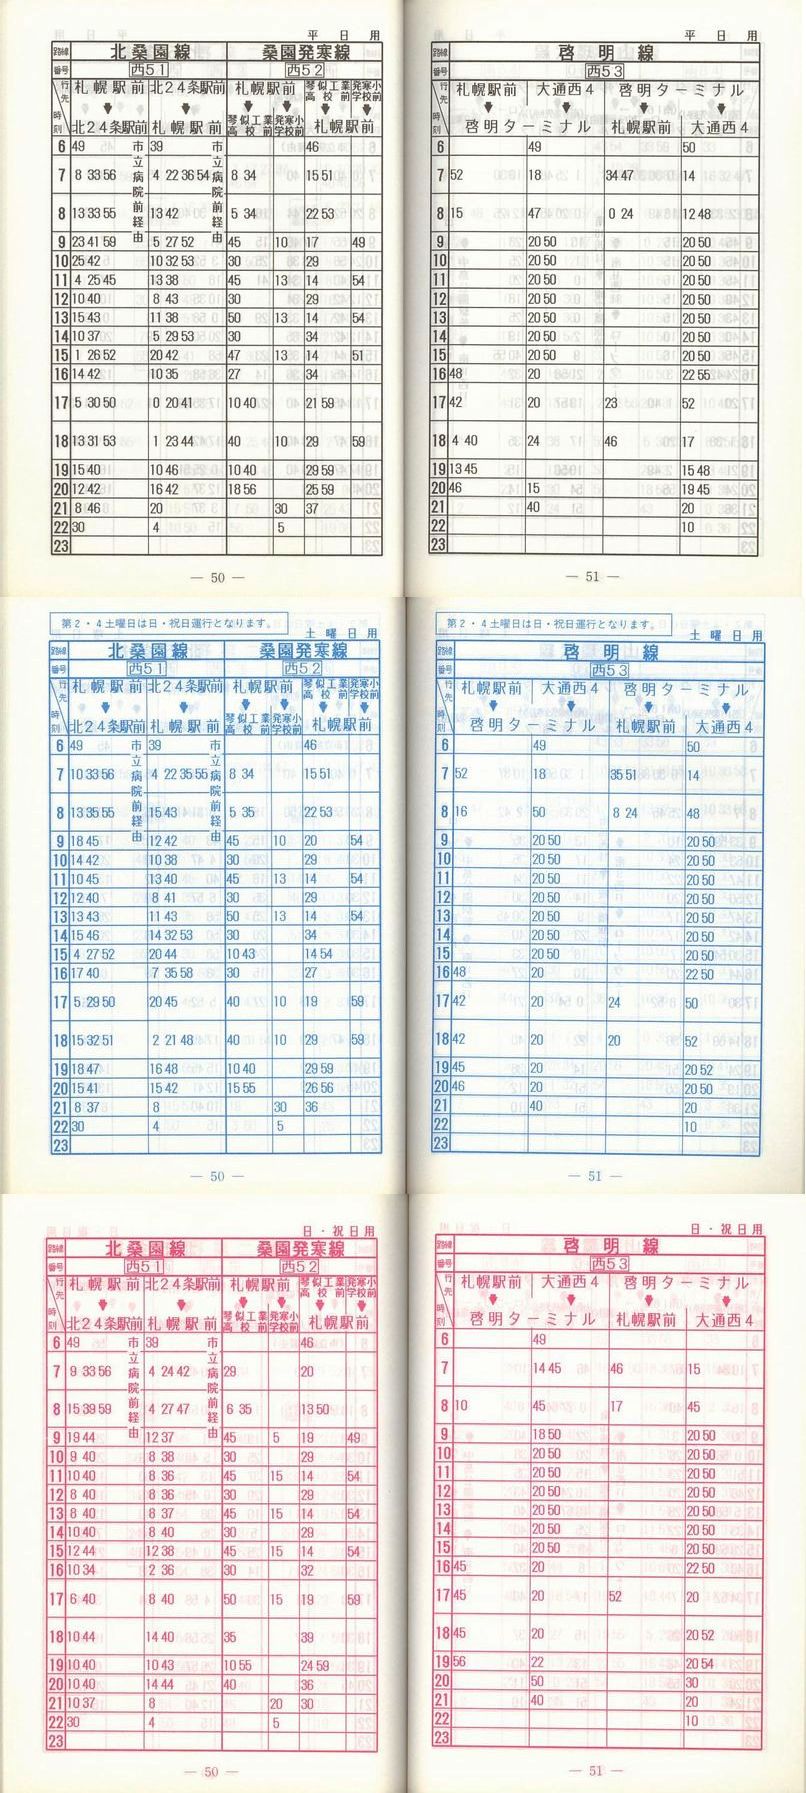 平日用
路線 北桑園線 桑園発寒線
番号 西51 西52
行先 札幌駅前 北24条駅前 札幌駅前 琴似工業高校前 発寒小学校前
時刻 北24条駅前 札幌駅前 琴似工業高校前 発寒小学校前 札幌駅前
市立病院前経由 市立病院前経由
6 49 39 46
7 8 33 56 4 22 36 54 8 34 15 51
8 13 33 55 13 42 5 34 22 53
9 23 41 59 5 27 52 45 10 17 49
10 25 42 10 32 53 30 29
11 4 25 45 13 38 45 13 14 54
12 10 40 8 43 30 29
13 15 43 11 38 50 13 14 54
14 10 37 5 29 53 30 34
15 1 26 52 20 42 47 13 14 51
16 14 42 10 35 27 34
17 5 30 50 0 20 41 10 40 21 59
18 13 31 53 1 23 44 40 10 29 59
19 15 40 10 46 10 40 29 59
20 12 42 16 42 18 56 25 59
21 8 46 20 30 37
22 30 4 5
23
— 50 —
平日用
路線 啓明線
番号 西53
行先 札幌駅前 大通西4 啓明ターミナル
時刻 啓明ターミナル 札幌駅前 大通西4
6 49 50
7 52 18 34 47 14
8 15 47 0 24 12 48
9 20 50 20 50
10 20 50 20 50
11 20 50 20 50
12 20 50 20 50
13 20 50 20 50
14 20 50 20 50
15 20 50 20 50
16 48 20 22 55
17 42 20 23 52
18 4 40 24 46 17
19 13 45 15 48
20 46 15 19 45
21 40 20
22 10
23
— 51 —
第2・4土曜日は日・祝日運行となります。
土曜日用
路線 北桑園線 桑園発寒線
番号 西51 西52
行先 札幌駅前 北24条駅前 札幌駅前 琴似工業高校前 発寒小学校前
時刻 北24条駅前 札幌駅前 琴似工業高校前 発寒小学校前 札幌駅前
市立病院前経由 市立病院前経由
6 49 39 46
7 10 33 56 4 22 35 55 8 34 15 51
8 13 35 55 15 43 5 35 22 53
9 18 45 12 42 45 10 20 54
10 14 42 10 38 30 29
11 10 45 13 40 45 13 14 54
12 12 40 8 41 30 29
13 13 43 11 43 50 13 14 54
14 15 46 14 32 53 30 34
15 4 27 52 20 44 10 43 14 54
16 17 40 7 35 58 30 27
17 5 29 50 20 45 40 10 19 59
18 15 32 51 2 21 48 40 10 29 59
19 18 47 16 48 10 40 29 59
20 15 41 15 42 15 55 26 56
21 8 37 8 30 36
22 30 4 5
23
— 50 —
第2・4土曜日は日・祝日運行となります。
土曜日用
路線 啓明線
番号 西53
行先 札幌駅前 大通西4 啓明ターミナル
時刻 啓明ターミナル 札幌駅前 大通西4
6 49 50
7 52 18 35 51 14
8 16 50 8 24 48
9 20 50 20 50
10 20 50 20 50
11 20 50 20 50
12 20 50 20 50
13 20 50 20 50
14 20 50 20 50
15 20 50 20 50
16 48 20 22 50
17 42 20 24 50
18 42 20 20 52
19 45 20 20 52
20 46 20 20 50
21 40 20
22 10
23
— 51 —
日・祝日用
路線 北桑園線 桑園発寒線
番号 西51 西52
行先 札幌駅前 北24条駅前 札幌駅前 琴似工業高校前 発寒小学校前
時刻 北24条駅前 札幌駅前 琴似工業高校前 発寒小学校前 札幌駅前
市立病院前経由 市立病院前経由
6 49 39 46
7 9 33 56 4 24 42 29 20
8 15 39 59 4 27 47 6 35 13 50
9 19 44 12 37 45 5 19 49
10 9 40 8 38 30 29
11 10 40 8 36 45 15 14 54
12 8 40 8 36 30 29
13 8 40 8 37 45 15 14 54
14 10 40 8 40 30 29
15 12 44 12 38 45 15 14 54
16 10 34 2 36 30 32
17 6 40 8 40 50 15 19 59
18 10 44 14 40 35 39
19 10 40 10 43 10 55 24 59
20 10 40 14 44 40 36
21 10 37 8 20 30
22 30 4 5
23
— 50 —
日・祝日用
路線 啓明線
番号 西53
行先 札幌駅前 大通西4 啓明ターミナル
時刻 啓明ターミナル 札幌駅前 大通西4
6 49
7 14 45 46 15
8 10 45 17 45
9 18 50 20 50
10 20 50 20 50
11 20 50 20 50
12 20 50 20 50
13 20 50 20 50
14 20 50 20 50
15 20 50 20 50
16 45 20 22 50
17 45 20 52 20
18 45 20 20 52
19 56 22 20 54
20 50 30
21 40 20
22 10
23
— 51 —